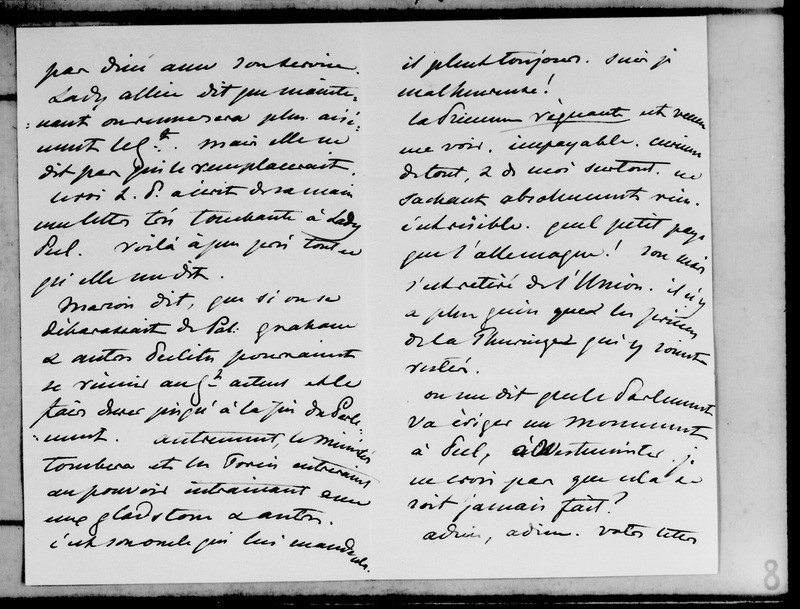 par Dieu avec son service.
Lady Allice dit que mainte-
=nant on renversera plus aisé-
=ment le Gt. mais elle ne
dit pas qui le remplacerait.
le roi L. P. a écrit de sa main
une lettre très touchante à Lady
Peel. Voilà à peu près tout ce
qu'elle me dit.
Marion dit, que si on se
débarassait de Pal: Graham
& autres Peelites pourraient
se réunir au Gt actuel et le
faire durer jusqu'à la fin du Parle-
=ment. autrement, le Ministère
tombera et les Tories entreraient
au pouvoir entrainant avec
eux Gladstone & autres.
c'est son oncle qui lui mande cela.
il pleut toujours. suis je
malheureuse!
la Princesse régnante est venue
me voir. impayable. curieuse
de tout, & de moi surtout. ne
sachant absolument rien.
c'est risible. quel petit pays
que l'allemagne! son mari
s'est retiré de l'Union. il n'y
a plus guères que les princes
de la Thuringe qui y soient
restés.
on me dit que le Parlement
va ériger un monument
à Peel, à Westminster. je
ne crois pas que cela se
soit jamais fait?
adieu, adieu. votre lettre
8